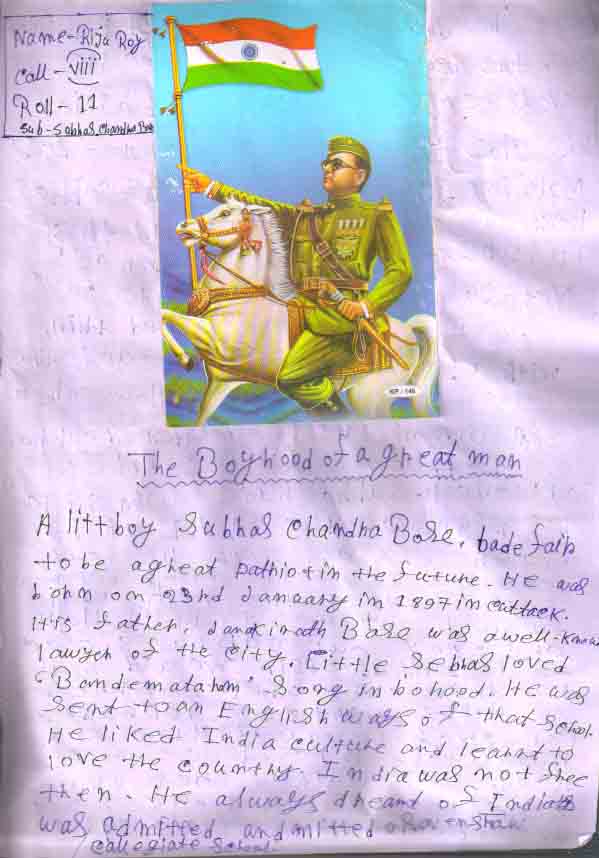 Name- Riju Roy
Call - viii
Roll - 11
Sub-Sobhas Chandha Bose
KP / 146
The Boyhood of a great man
A littboy Subhas Chandha Bose, bade fair
to be a great pathiot in the future. He was
bohn on 23rd January in 1897 in cuttack.
His father, Jankinath Bose was a well-known
lawyer of the city. Little Sebhas loved
"Bandemataham" Song in bohood. He was
sent to an English ways of that school.
He liked India culture and learnt to
love the country. India was not free
then. He always dreamt of India
was admitted, andmitted Ravenshaw
Collegiate School.